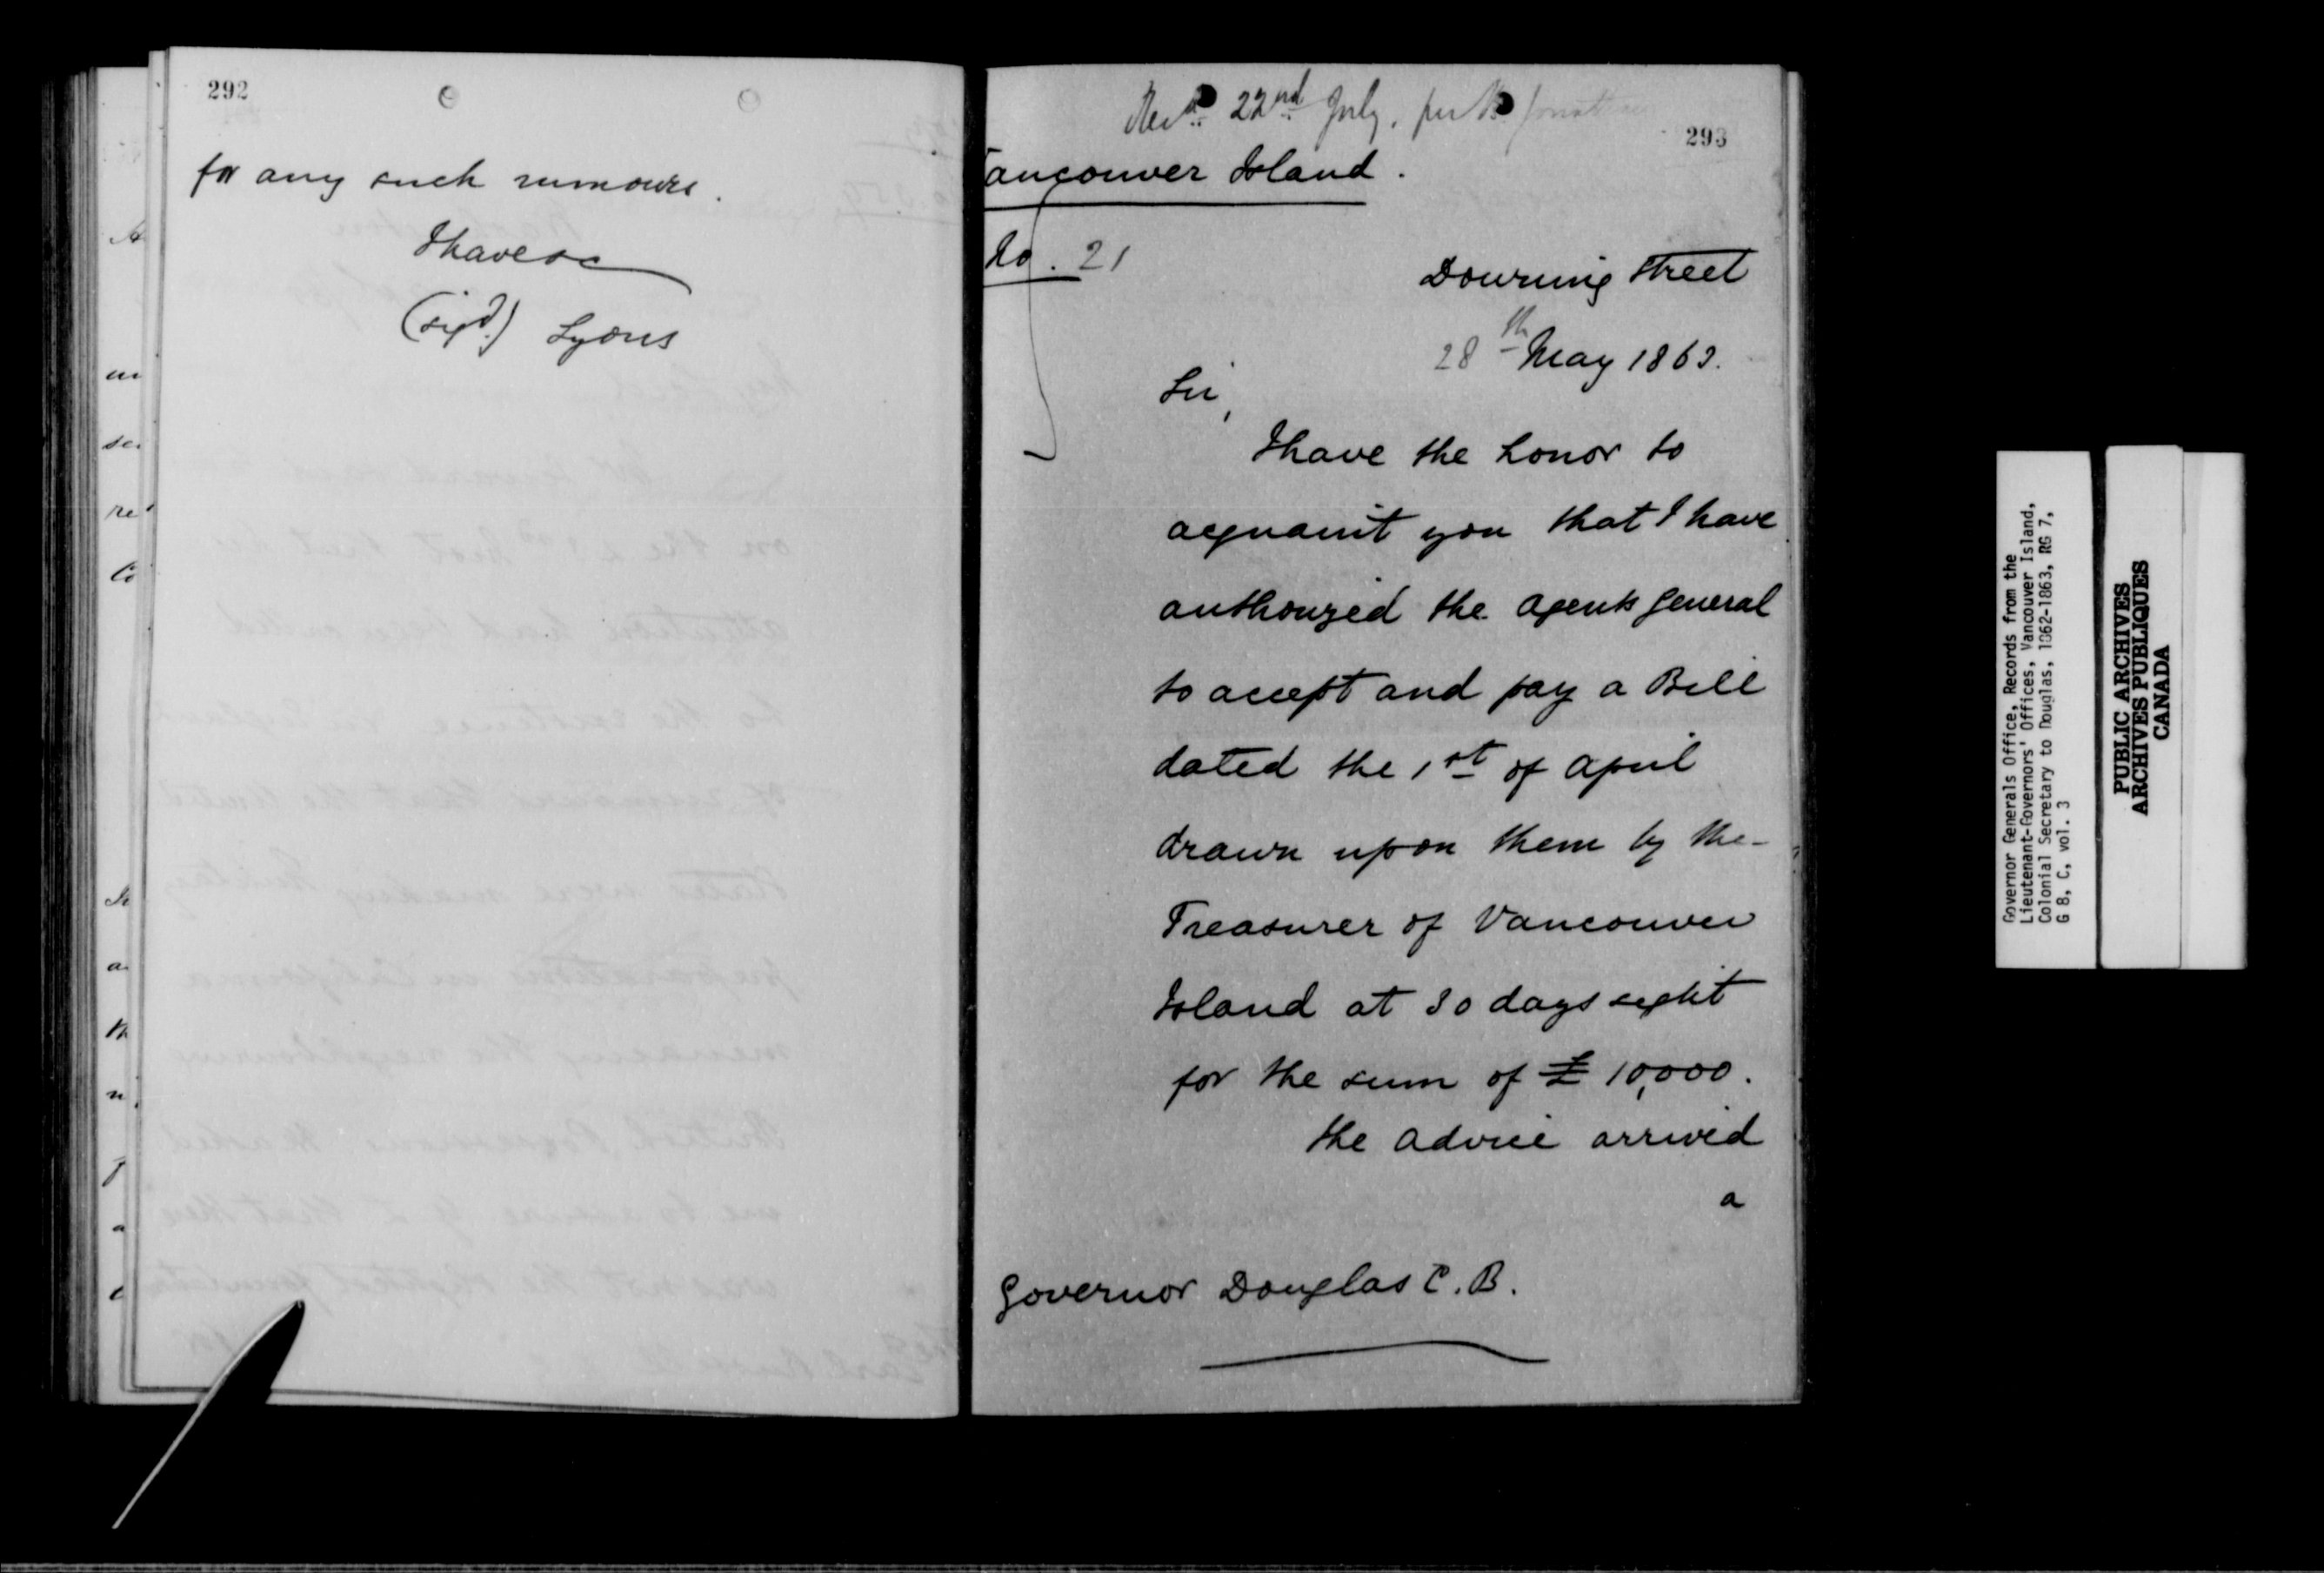 292
for any such rumours.
I have &c
(sigd.) Lyons
Recd. 22nd July. per
293
Vancouver Island.
No. 21
Downing Street
28th May 1863.
Sir,
I have the honor to
acquaint you that I have
authorized the Agents General
to accept and pay a Bill
dated the 1st of April
drawn upon them by the
Treasurer of Vancouver
Island at 30 days sight
for the sum of £10,000.
The advice arrived
a
Governor Douglas C.B.
Governor Generals Office, Records from the
Lieutenant-Governors' Offices, Vancouver Island,
Colonial Secretary to Douglas, 1862-1863, RG 7,
G 8, C, vol. 3
PUBLIC ARCHIVES
ARCHIVES PUBLIQUES
CANADA